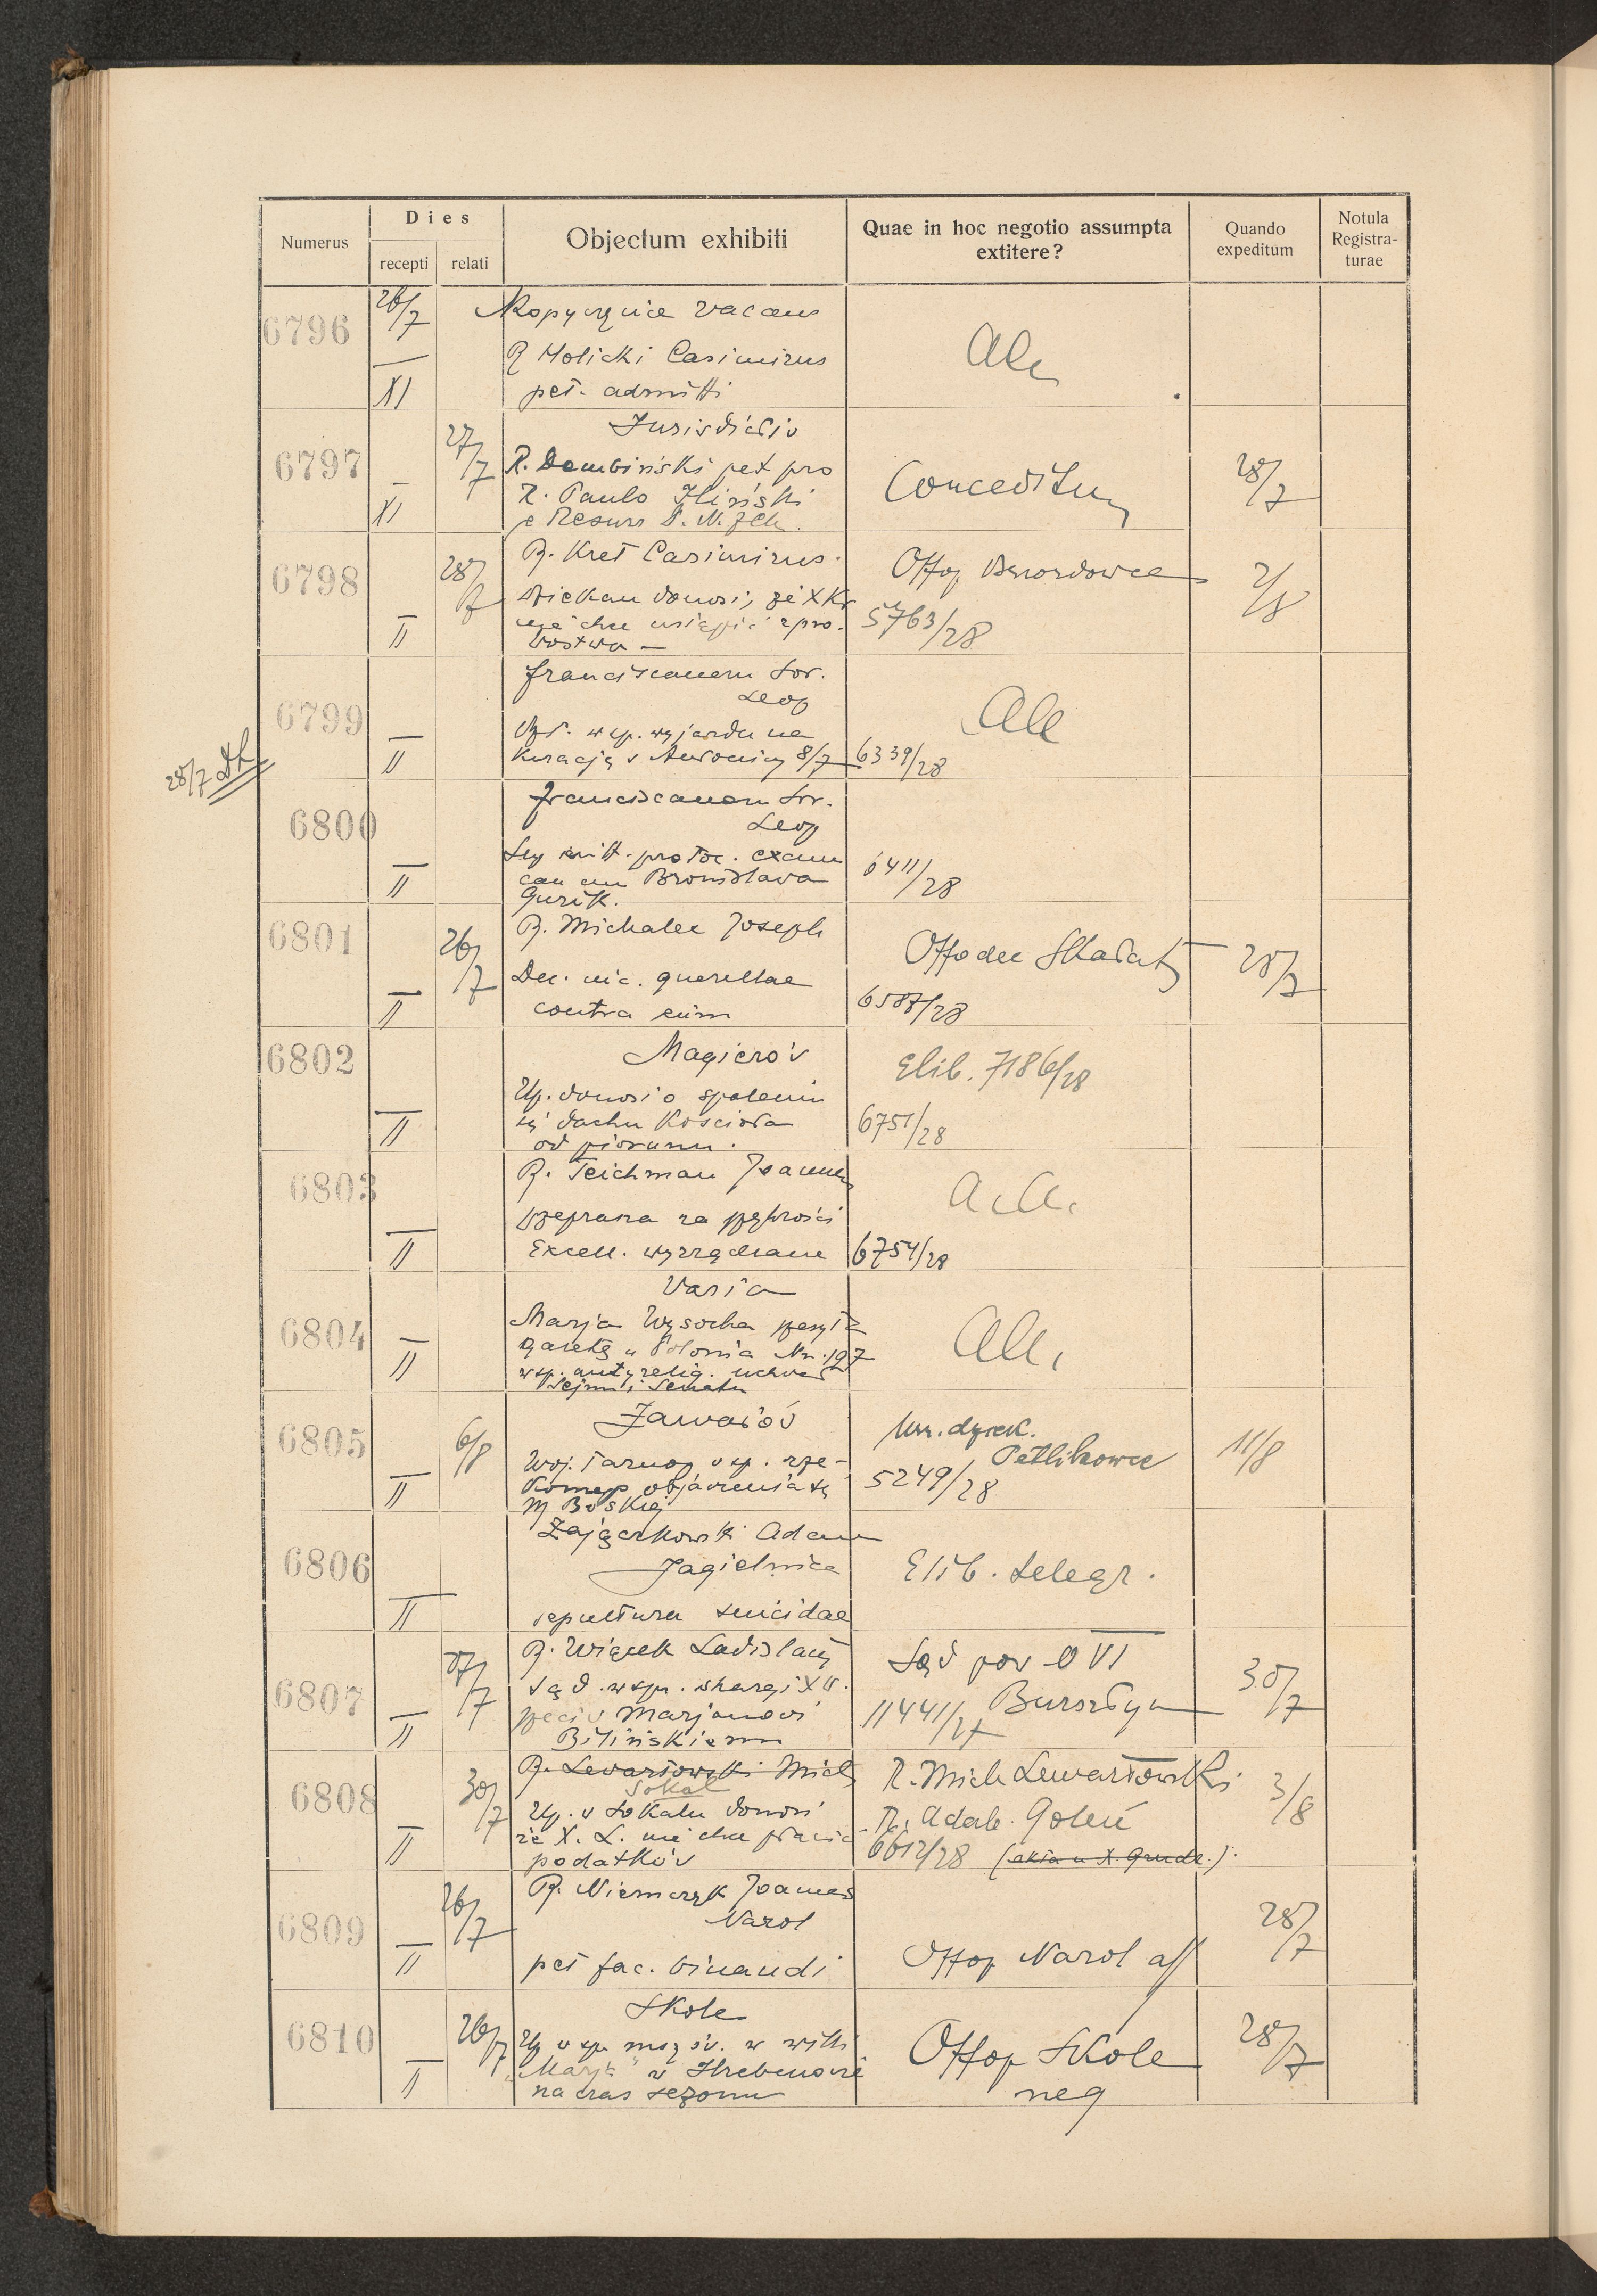 Numerus
Dies
recepti
relati
Objectum exhibiti
Quae in hoc negotio assumpta
extitere?
Quando
expeditum
Notula
Registra-
turae
6796
26/7
XI
Kopyczyńce vacans
R Holicki Casimirus
pet. admitti
6797
27/7
XI
Jurisdictio
R. Dembiński pet pro
R. Paulo Iliński
Conceditur
28/7
6798
28/7
II
R. Kret Casimirus
dziekan donosi, że X Kr
nie chce ustąpić z pro-
bostwa —
5763/28
2/8
6799
II
Franciscanem Sor.
Leop
wsp. wyjazdu na
kurację s Antoniny 8/7
6339/28
28/7
6800
II
Franciscanem Sor.
Leop
mitt. protoc. exam
can Bronislava
6411/28
6801
26/7
II
R. Michalec Joseph
Dec. querellae
contra eum
Offo dec Skałat
6587/28
28/7
6802
II
Magierów
Up. donosi o spaleniu
się dachu kościoła
od piorunu.
Elib. 7186/28
6751/28
6803
II
R. Teichman Joannes
przeprasza za przykrości
Excell. wyrządzane
a. a.
6754/28
6804
II
Varia
Marja Wysocka przesyła
gazetę „Polonia Nr. 197
wsp. antyrelig. uchwał
Sejmu i Senatu
6805
6/8
II
Jazwałów
Woj. Tarnop wsp. rze-
komego objawienia się
M Boskiej
Petlikowce
5249/28
11/8
6806
II
Zajączkowski Adam
Jagielnica
sepultura suicidae
Elib. telegr.
6807
27/7
II
R. Wiącek Ladislaus
Sąd. w spr. skargi X W.
przeciw Marjanowi
Bilińskiemu
Sąd pow O VI
Bursztyn
11441/27
30/7
6808
30/7
II
R. Lewartowski Mich
Sokal
Up. w Sokalu donosi
że X. L. nie chce płacić
podatków
R. Mich Lewartowski
R. Adalb. Goleń
6612/28 (akta u X. Grudz.).
3/8
6809
26/7
II
R. Niemczyk Joannes
Narol
pet fac. binandi
Offop Narol aff
28/7
6810
26/7
II
Skole
Up wsp. mszy św. w willi
„Marja” w Hrebenowie
na czas sezonu
Offop Skole
neg
28/7